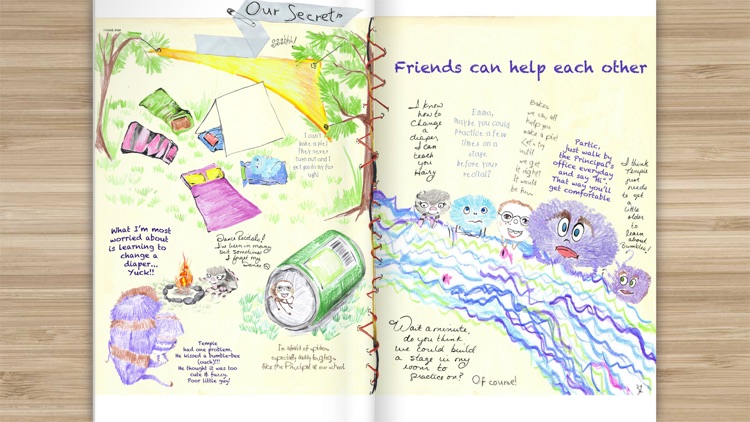 Our Secret
zzzhh!
I can't
bake a pie!
They never
turn out and I
get pie on my fur
ugh!
What I'm most
worried about
is learning to
change a
diaper...
Yuck!!
Dance Recitals!
I've been in many
but sometimes
I forget my
moves
Temple
had one problem.
He kissed a bumble-bee
(ouch)!!!
He thought it was too
cute & fuzzy.
Poor little guy!
I'm afraid of spiders
especially daddy long legs
like the Principal at our school
Friends can help each other
I know
how to
Change
a
diaper,
I can
teach
you
Hairy
Emma,
Maybe you could
Practice a few
times on a
stage
before your
recital?
Baker
we can all
help you
make a pie!
Let's try
until
we get
it right!
It would
be fun
Partic,
just walk by
the Principal's
office everyday
and say "Hi".
That way you'll
get comfortable
I think
Temple
just needs
to get
a
little
older
to
learn
about
Bumbles!
Wait a minute,
do you think
we could build
a stage in my
room to
practice on?
Of course!